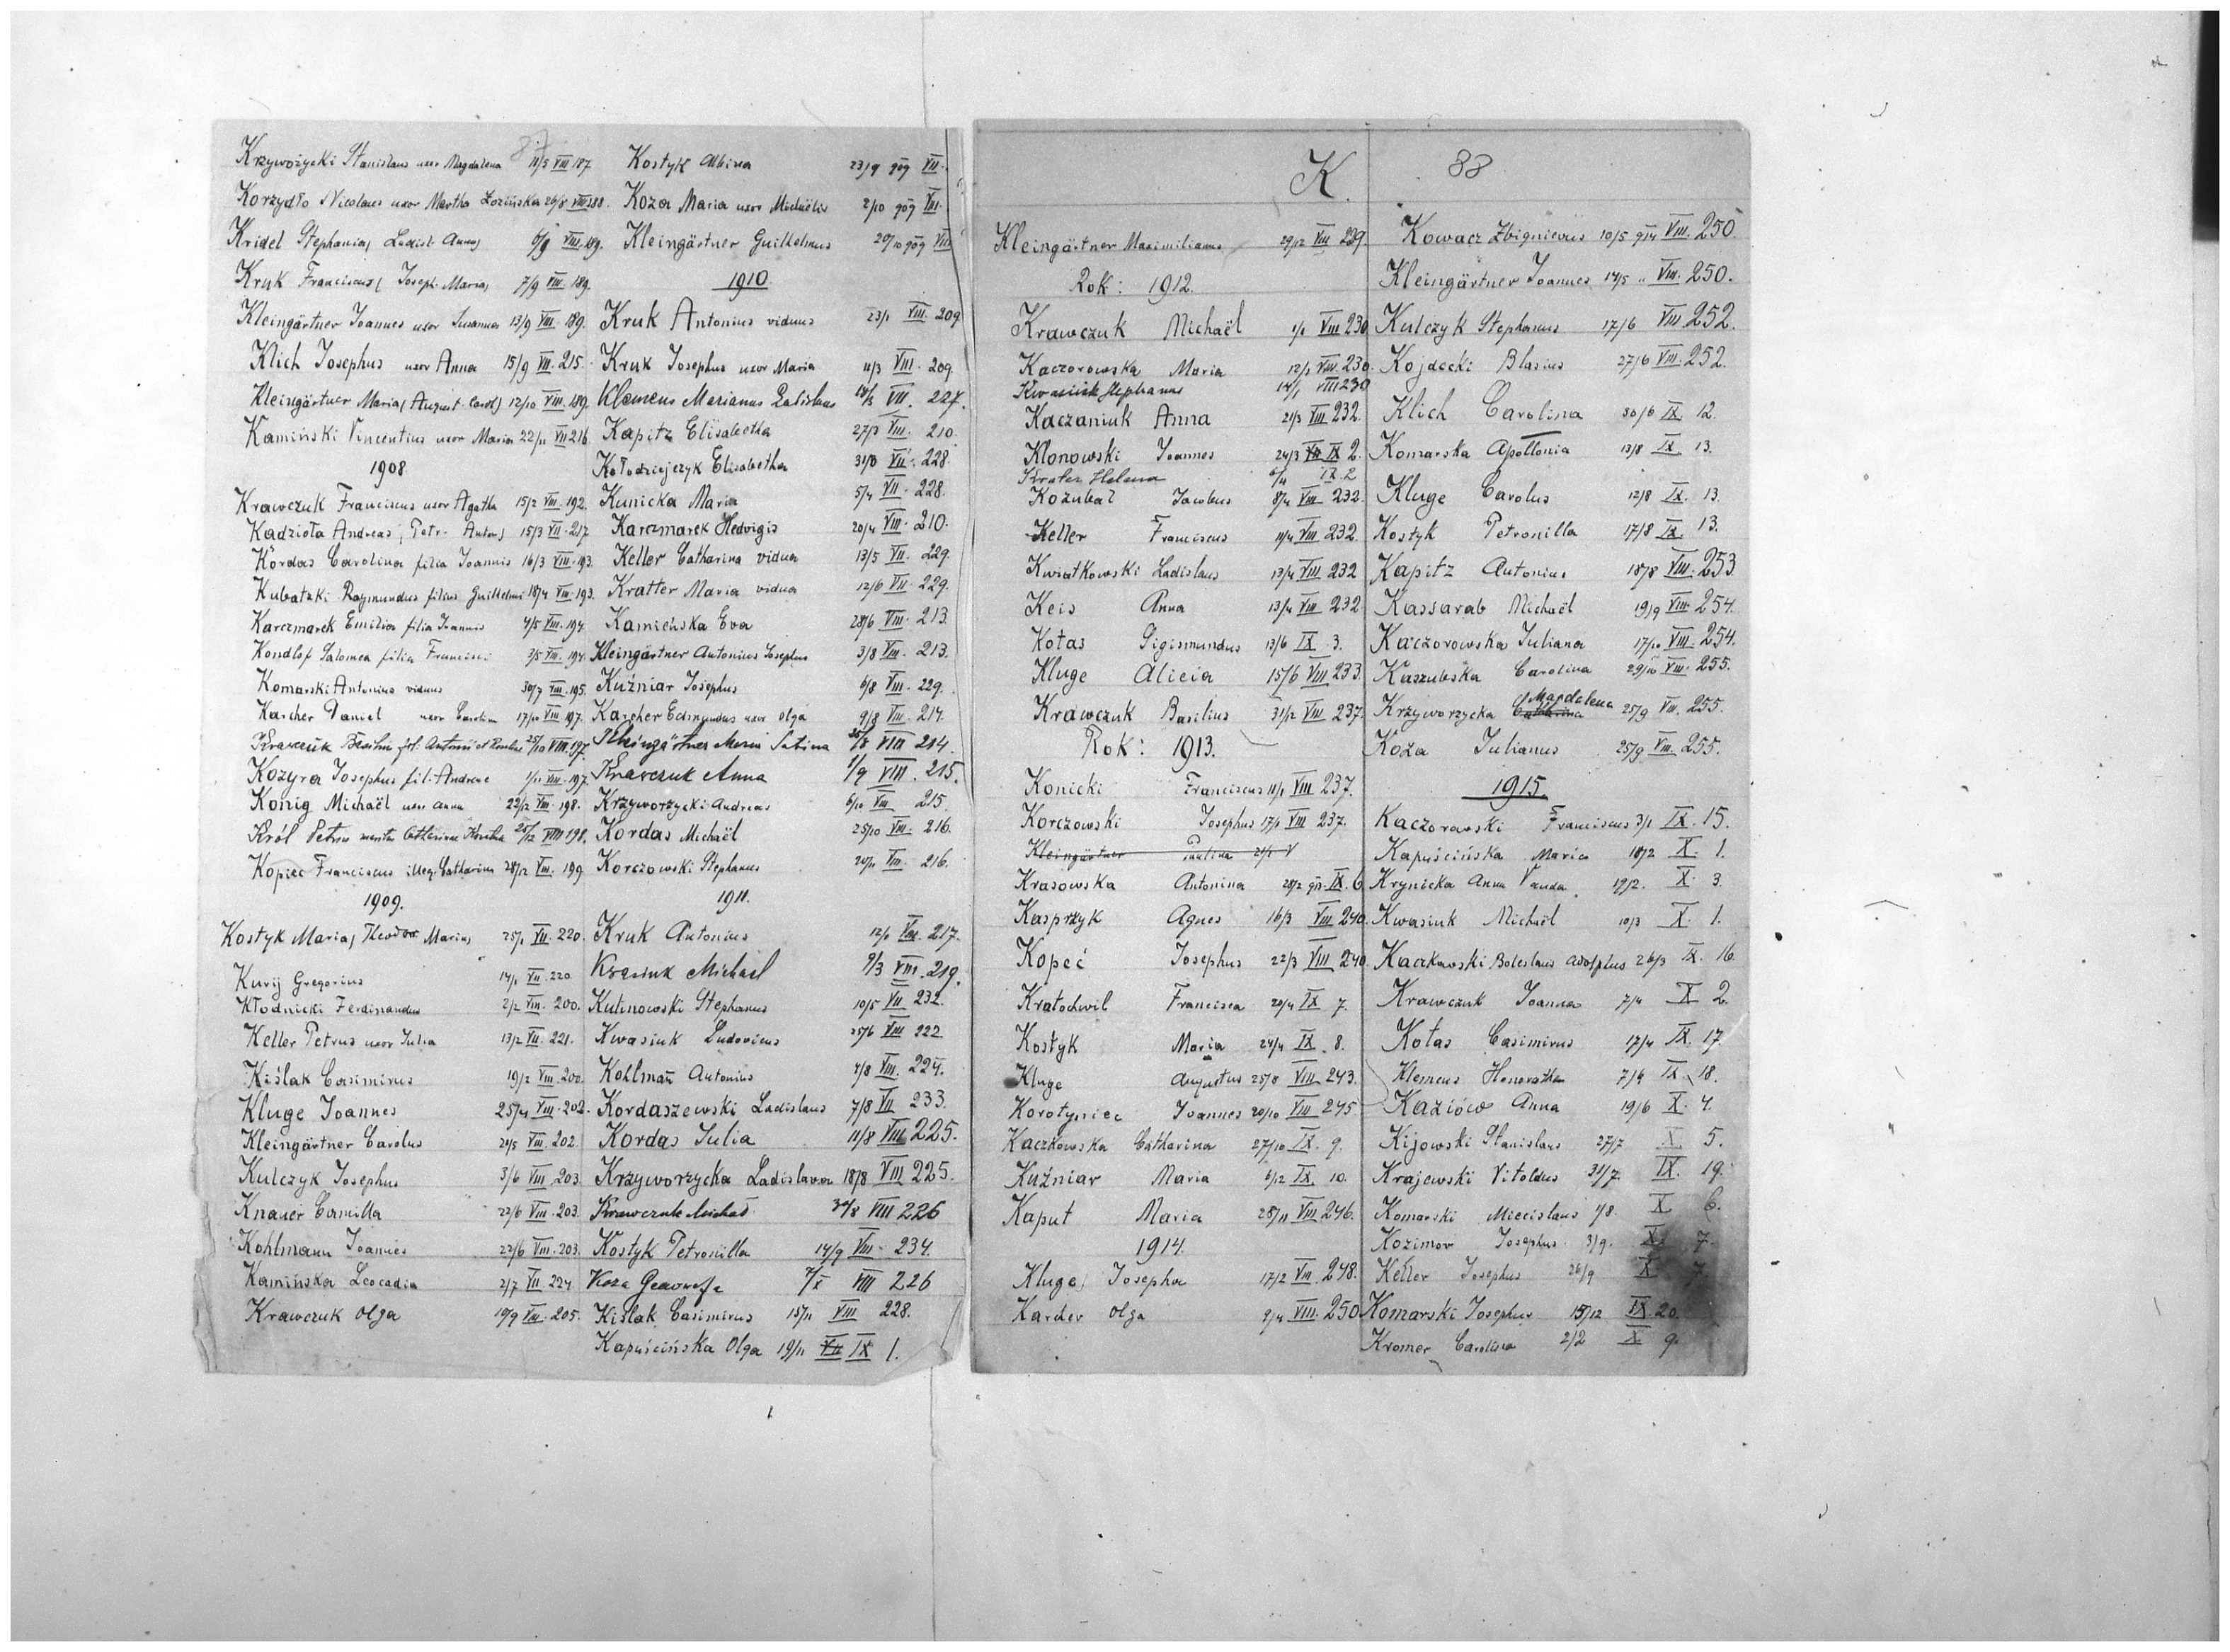 Krzyworzycki Stanislaus uxor Magdalena 11/5 VIII 187
Korzydło Nicolaus uxor Martha Lozińska 26/8 VIII 188.
Kridel Stephania, Ladisl. Anna, 6/9 VIII. 189.
Kruk Franciscus, Joseph. Maria, 7/9 VIII. 189.
Kleingärtner Joannes uxor Susanna 13/9 VIII. 189.
Klich Josephus uxor Anna 15/9 VII. 215.
Kleingärtner Maria, August. Carol, 12/10 VIII. 189.
Kamiński Vincentius uxor Maria 22/11 VII 216
1908
Krawczuk Franciscus uxor Agatha 15/2 VIII. 192.
Kadzioła Andreas, Petr. Anton, 15/3 VII. 217
Kordas Carolina filia Joannis 16/3 VIII. 193
Kubatzki Raymundus filius Guilhelmi 18/4 VIII. 193.
Karczmarek Emilia filia Joannis 4/5 VIII. 194
Kondlof Salomea filia Francisci 3/5 VIII. 194.
Komarski Antonius viduus 30/7 VIII. 195.
Karcher Daniel uxor Carolina 17/10 VIII. 197.
Krawczuk fil. Antonii et 25/10 VIII. 197
Kozyra Josephus fil. Andreae 1/11 VIII. 197.
König Michaël uxor Anna 22/12 VIII. 198.
Król Petrus Catharinae 25/12 VIII 198.
Kopiec Franciscus illeg. Catharina 28/12 VIII. 199
1909.
Kostyk Maria, Theodor Maria, 25/1 VII. 220.
Kurij Gregorius 14/1 VII. 220
Kłodnicki Ferdinandus 2/2 VIII. 200.
Keller Petrus uxor Julia 13/2 VII. 221.
Kiślak Casimirus 19/2 VIII. 200.
Kluge Joannes 25/4 VIII. 202.
Kleingärtner Carolus 24/5 VIII. 202.
Kulczyk Josephus 3/6 VIII. 203.
Knauer Camilla 22/6 VIII. 203.
Kohlmann Joannes 22/6 VIII. 203.
Kamińska Leocadia 2/7 VII. 224
Krawczuk Olga 19/9 VIII. 205.
Kostyk Albina 23/9 909 VII.
Koza Maria uxor Michaëlis 2/10 909 VII.
Kleingärtner Guilhelmus 20/10 909 VII
1910
Kruk Antonius viduus 23/1 VIII. 209
Kruk Josephus uxor Maria 11/3 VIII. 209.
Klemens Marianus Ladislaus VII. 227.
Kapitz Elisabetha 27/3 VIII. 210.
Kołodziejczyk Elisabetha 31/3 VII. 228.
Kunicka Maria 5/4 VII. 228.
Karczmarek Hedvigis 20/4 VIII. 210.
Keller Catharina vidua 13/5 VII. 229.
Kratter Maria vidua 12/6 VII. 229.
Kamieńska Eva 28/6 VIII. 213.
Kleingärtner Antonius Josephus 3/8 VIII. 213.
Kuźniar Josephus 6/8 VIII. 229.
Karcher Edmundus uxor Olga 9/8 VIII. 214.
Kleingärtner Maria Sabina VIII 214.
Krawczuk Anna 1/9 VIII. 215.
Krzyworzycki Andreas 6/10 VIII. 215.
Kordas Michaël 25/10 VIII. 216.
Korczowski Stephanus 20/11 VIII. 216.
1911.
Kruk Antonius 12/1 VIII. 217.
Krasiuk Michael 9/3 VIII. 219.
Kulinowski Stephanus 10/5 VII. 232.
Kwasiuk Ludovicus 25/6 VIII 222.
Kohlmann Antonius 4/8 VIII. 224.
Kordaszewski Ladislaus 7/8 VII 233.
Kordas Julia 11/8 VIII 225.
Krzyworzycka Ladislava 18/8 VIII 225.
Krawczuk Michał 30/8 VIII 226
Kostyk Petronilla 14/9 VIII. 234.
Koza Genowefa 7/X VIII 226
Kiślak Casimirus 15/11 VIII 228.
Kapuścińska Olga 19/11 IX 1.
K. 88
Kleingärtner Maximilianus 29/12 VIII 239.
Rok: 1912.
Krawczuk Michaël 1/1 VIII 230
Kaczorowska Maria 12/1 VIII. 230.
Kwasiuk Stephanus 14/1 VIII 230
Kaczaniuk Anna 21/3 VIII 232.
Klonowski Joannes 24/3 IX 2.
Krater Helena 6/4 IX 2
Kozubal Jacobus 8/4 VIII 232.
Keller Franciscus 11/4 VIII 232.
Kwiatkowski Ladislaus 13/4 VIII 232
Keis Anna 13/4 VIII 232
Kotas Sigismundus 13/6 IX 3.
Kluge Alicia 15/6 VIII 233.
Krawczuk Basilius 31/12 VIII 237.
Rok: 1913.
Konicki Franciscus 11/1 VIII 237.
Korczowski Josephus 17/1 VIII 237.
Kleingärtner Paulina 21/2 V
Krasowska Antonina 28/2 913 IX. 6
Kasprzyk Agnes 16/3 VIII 240.
Kopeć Josephus 22/3 VIII 240.
Kratochwil Francisca 20/4 IX 7.
Kostyk Maria 24/4 IX. 8.
Kluge Augustus 25/8 VIII 243.
Korotyniec Joannes 20/10 VIII 245
Kaczkowska Catharina 27/10 IX. 9.
Kuźniar Maria 6/12 IX. 10.
Kaput Maria 28/11 VIII 246.
1914.
Kluge Josepha 17/2 VIII. 248.
Karder Olga 9/4 VIII. 250
Kowacz Zbignievus 10/5 914 VIII. 250.
Kleingärtner Joannes 14/5 " VIII. 250.
Kulczyk Stephanus 17/6 VIII 252.
Kojdecki Blasius 27/6 VIII. 252.
Klich Carolina 30/6 IX 12.
Komarska Apollonia 13/8 IX 13.
Kluge Carolus 12/8 IX. 13.
Kostyk Petronilla 17/8 IX 13.
Kapitz Antonius 18/8 VIII. 253
Kassarab Michaël 19/9 VIII. 254.
Kaczorowska Juliana 17/10 VIII. 254.
Kaszubska Carolina 29/10 VIII. 255.
Krzyworzycka Catharina Magdalena 25/9 VIII. 255.
Koza Julianus 25/9 VIII. 255.
1915.
Kaczorowski Franciscus 3/1 IX. 15.
Kapuścińska Maria 18/2 X. 1.
Krynicka Anna Vanda 19/2. X. 3.
Kwasiuk Michaël 10/3 X. 1.
Kaczkowski Boleslaus Adolphus 26/3 IX. 16.
Krawczuk Joannes 7/4 X 2.
Kotas Casimirus 17/4 IX. 17.
Klemens Honoratha 7/4 IX. 18.
Kaziów Anna 19/6 X. 4.
Kijowski Stanislaus 27/7 X. 5.
Krajewski Vitoldus 31/7 IX. 19.
Komarski Miecislaus 1/8. X 6.
Kozimor Josephus 3/9. X 7.
Keller Josephus 26/9 X 7.
Komarski Josephus 15/12 IX 20.
Kromer Carolina 2/2 X 9.